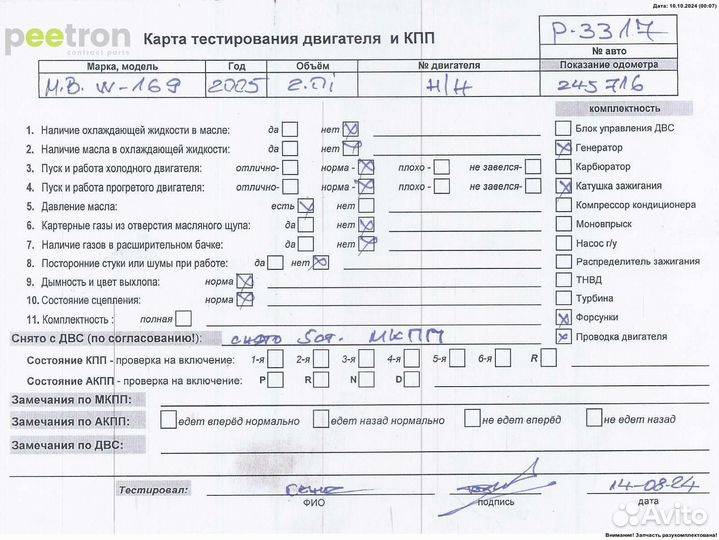 Дата: 10.10.2024 (00:07)
peetron
contract parts
Карта тестирования двигателя и КПП
P-3317
№ авто
Марка, модель Год Объём № двигателя Показание одометра
M.B. W-169 2005 2.0i Н/Н 245716
комплектность
1. Наличие охлаждающей жидкости в масле: да нет
Блок управления ДВС
2. Наличие масла в охлаждающей жидкости: да нет
Генератор
3. Пуск и работа холодного двигателя: отлично- норма - плохо - не завелся-
Карбюратор
4. Пуск и работа прогретого двигателя: отлично- норма - плохо - не завелся-
Катушка зажигания
5. Давление масла: есть нет
Компрессор кондиционера
6. Картерные газы из отверстия масляного щупа: да нет
Моновпрыск
7. Наличие газов в расширительном бачке: да нет
Насос г/у
8. Посторонние стуки или шумы при работе: да нет
Распределитель зажигания
9. Дымность и цвет выхлопа: норма
ТНВД
10. Состояние сцепления: норма
Турбина
11. Комплектность : полная
Форсунки
Снято с ДВС (по согласованию!): снято МКПП
Проводка двигателя
Состояние КПП - проверка на включение: 1-я 2-я 3-я 4-я 5-я 6-я R
Состояние АКПП - проверка на включение: P R N D
Замечания по МКПП:
Замечания по АКПП: едет вперёд нормально едет назад нормально не едет вперёд не едет назад
Замечания по ДВС:
Тестировал: 14-08-24
ФИО подпись дата
Avito
Внимание! Запчасть разукомплектована!